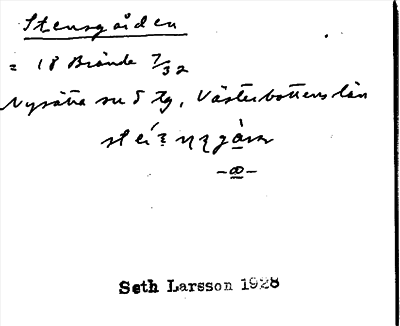 Stensgården
= 18 Brände 7/32
Nysätra sn & tg, Västerbottens län
Seth Larsson 1928